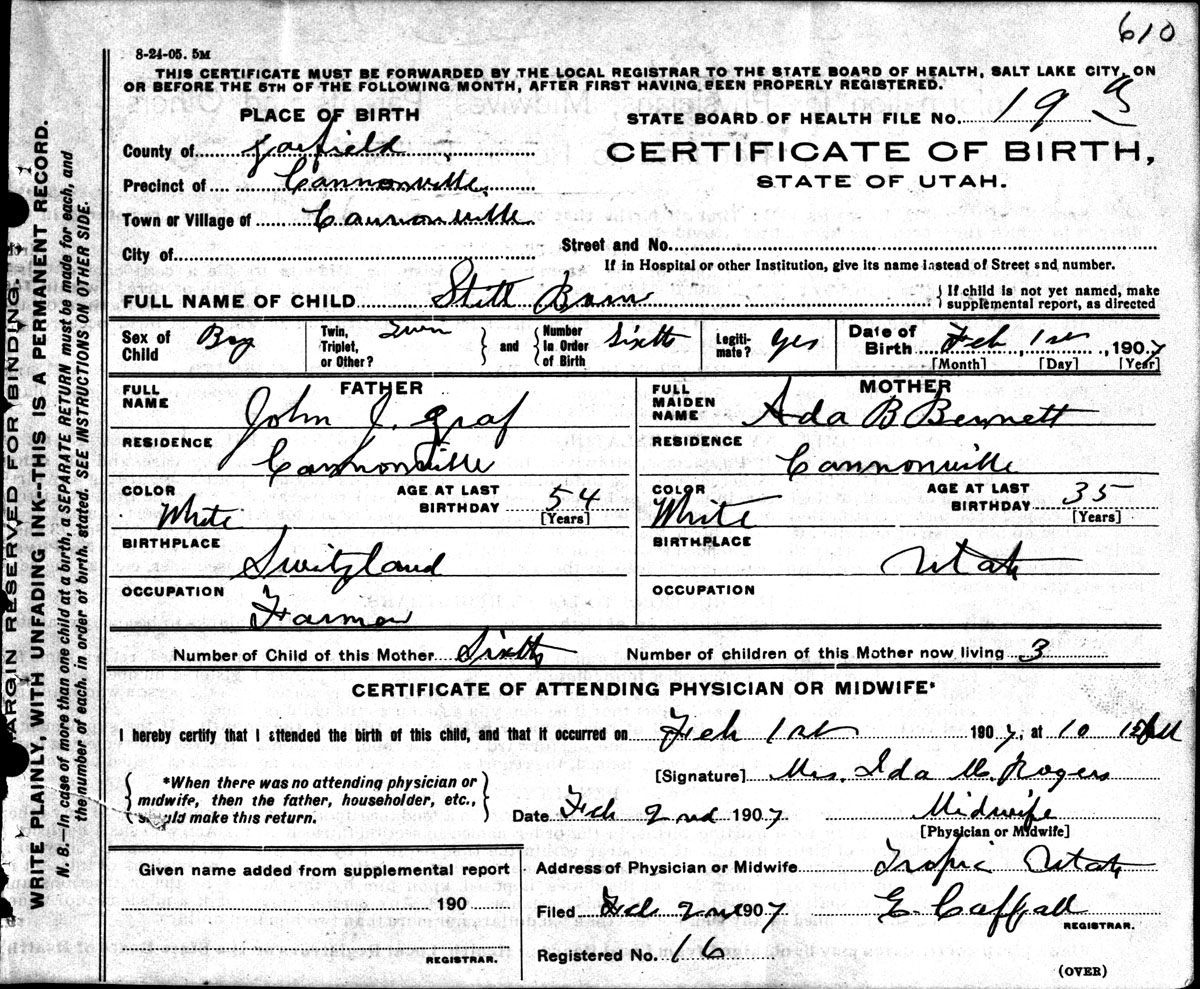 610
8-24-05. 5M
THIS CERTIFICATE MUST BE FORWARDED BY THE LOCAL REGISTRAR TO THE STATE BOARD OF HEALTH, SALT LAKE CITY, ON
OR BEFORE THE 5TH OF THE FOLLOWING MONTH, AFTER FIRST HAVING BEEN PROPERLY REGISTERED.
PLACE OF BIRTH
STATE BOARD OF HEALTH FILE No. 19
County of Garfield
CERTIFICATE OF BIRTH,
Precinct of Cannonville
STATE OF UTAH.
Town or Village of Cannonville
City of
Street and No.
If in Hospital or other Institution, give its name instead of Street and number.
FULL NAME OF CHILD Still Born
If child is not yet named, make
supplemental report, as directed
Sex of Child Boy
Twin, Triplet, or Other? Twin and Number In Order of Birth Sixth
Legiti-mate? Yes
Date of Birth Feb, 1st, 1907
[Month] [Day] [Year]
FATHER
MOTHER
FULL NAME John J. Graf
FULL MAIDEN NAME Ada B Bennett
RESIDENCE Cannonville
RESIDENCE Cannonville
COLOR White AGE AT LAST BIRTHDAY 54 [Years]
COLOR White AGE AT LAST BIRTHDAY 35 [Years]
BIRTHPLACE Switzland
BIRTHPLACE Utah
OCCUPATION Farmer
OCCUPATION
Number of Child of this Mother Sixth Number of children of this Mother now living 3
CERTIFICATE OF ATTENDING PHYSICIAN OR MIDWIFE*
I hereby certify that I attended the birth of this child, and that it occurred on Feb 1st 1907, at 10
[Signature] Mrs. Ida M. Rogers
*When there was no attending physician or
midwife, then the father, householder, etc.,
should make this return.
Date Feb 2nd 1907 Midwife
[Physician or Midwife]
Given name added from supplemental report
190
REGISTRAR.
Address of Physician or Midwife Tropic Utah
Filed Feb 2nd 1907 E. Caffall
REGISTRAR.
Registered No. 16
(OVER)
MARGIN RESERVED FOR BINDING.
WRITE PLAINLY, WITH UNFADING INK--THIS IS A PERMANENT RECORD.
N. B.--In case of more than one child at a birth, a SEPARATE RETURN must be made for each, and
the number of each, in order of birth, stated. SEE INSTRUCTIONS ON OTHER SIDE.